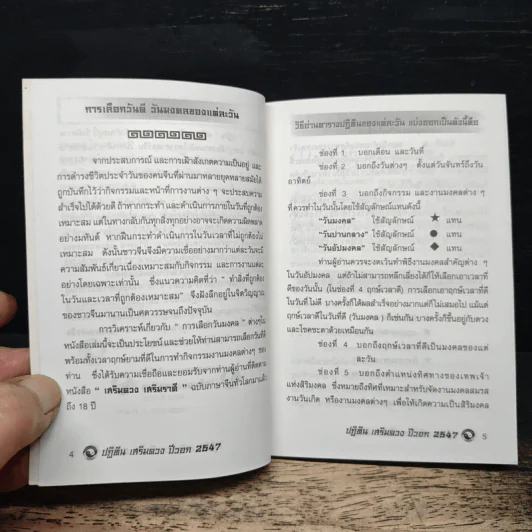 การเลือกวันดี วันมงคลของแต่ละวัน
จากประสบการณ์ และการเฝ้าสังเกตความเป็นอยู่ และ
การดำรงชีวิตประจำวันของคนจีนที่ผ่านมาหลายยุคหลายสมัยได้
ถูกบันทึกไว้ว่ากิจกรรมและหน้าที่การงานต่าง ๆ จะประสบความ
สำเร็จไปได้ด้วยดี ถ้าหากกระทำ และดำเนินการภายในวันที่ถูกต้อง
เหมาะสม แต่ในทางกลับกันทุกสิ่งทุกอย่างอาจจะเกิดความผิดพลาด
อย่างมหันต์ หากฝืนกระทำ ดำเนินการในวันเวลาที่ไม่ถูกต้องที่ไม่
เหมาะสม ดังนั้นชาวจีนจึงมีความเชื่ออย่างมากว่าแต่ละวันจะมี
ความสัมพันธ์เกี่ยวเนื่องเหมาะสมกับกิจกรรม และการงานแตกต่าง
อย่างโดยเฉพาะเท่านั้น ซึ่งแนวความคิดที่ว่า " ทำสิ่งที่ถูกต้อง
ในวันและเวลาที่ถูกต้องเหมาะสม" จึงฝังลึกอยู่ในจิตวิญญาณ
ของชาวจีนมานานเป็นศตวรรษจนถึงปัจจุบัน
การวิเคราะห์เกี่ยวกับ " การเลือกวันมงคล " ต่างๆใน
หนังสือเล่มนี้จะเป็นประโยชน์ และช่วยให้ท่านสามารถเลือกวันที่ดี
พร้อมทั้งเวลาฤกษ์ยามที่ดีในการทำกิจกรรมงานมงคลต่างๆ ของ
ท่าน ซึ่งได้รับความเชื่อถือและยอมรับจากท่านผู้อ่านที่ติดตาม
หนังสือ " เสริมดวง เสริมราศี " ฉบับภาษาจีนทั่วโลกมาแล้ว
ถึง 18 ปี
4 ปฏิทิน เสริมดวง ปีวอก 2547
วิธีอ่านตารางปฏิทินของแต่ละวัน แบ่งออกเป็นดังนี้คือ
ช่องที่ 1 บอกเดือน และวันที่
ช่องที่ 2 บอกถึงวันต่างๆ ตั้งแต่วันจันทร์ถึงวัน
อาทิตย์
ช่องที่ 3 บอกถึงกิจกรรม และงานมงคลต่าง ๆ
ที่ควรทำในวันนั้นโดยใช้สัญลักษณ์แทนดังนี้
"วันมงคล" ใช้สัญลักษณ์ ★ แทน
"วันปานกลาง" ใช้สัญลักษณ์ ● แทน
"วันอัปมงคล" ใช้สัญลักษณ์ ◆ แทน
ท่านผู้อ่านควรจะงดเว้นทำพิธีงานมงคลสำคัญต่าง ๆ
ในวันอัปมงคล แต่ถ้าไม่สามารถหลีกเลี่ยงได้ก็ให้เลือกเอาเวลาที่
ดีของวันนั้น (ในช่องที่ 4 ฤกษ์เวลาดี) การเลือกเอาฤกษ์เวลาที่ดี
ในวันที่ไม่ดี บางครั้งก็ได้ผลสำเร็จอย่างมากแต่ก็ไม่เสมอไป แม้แต่
ฤกษ์เวลาดีในวันที่ดี (วันมงคล) ก็เช่นกัน บางครั้งก็ขึ้นอยู่กับดวง
และโชคชะตาด้วยเหมือนกัน
ช่องที่ 4 บอกถึงฤกษ์เวลาที่ดีเป็นมงคลของแต่
ละวัน
ช่องที่ 5 บอกถึงตำแหน่งทิศทางของเทพเจ้า
แห่งสิริมงคล ซึ่งหมายถึงทิศที่เหมาะสำหรับจัดงานมงคลสมรส
งานวันเกิด หรืองานมงคลต่างๆ เพื่อให้เกิดความเป็นสิริมงคล
ปฏิทิน เสริมดวง ปีวอก 2547 5